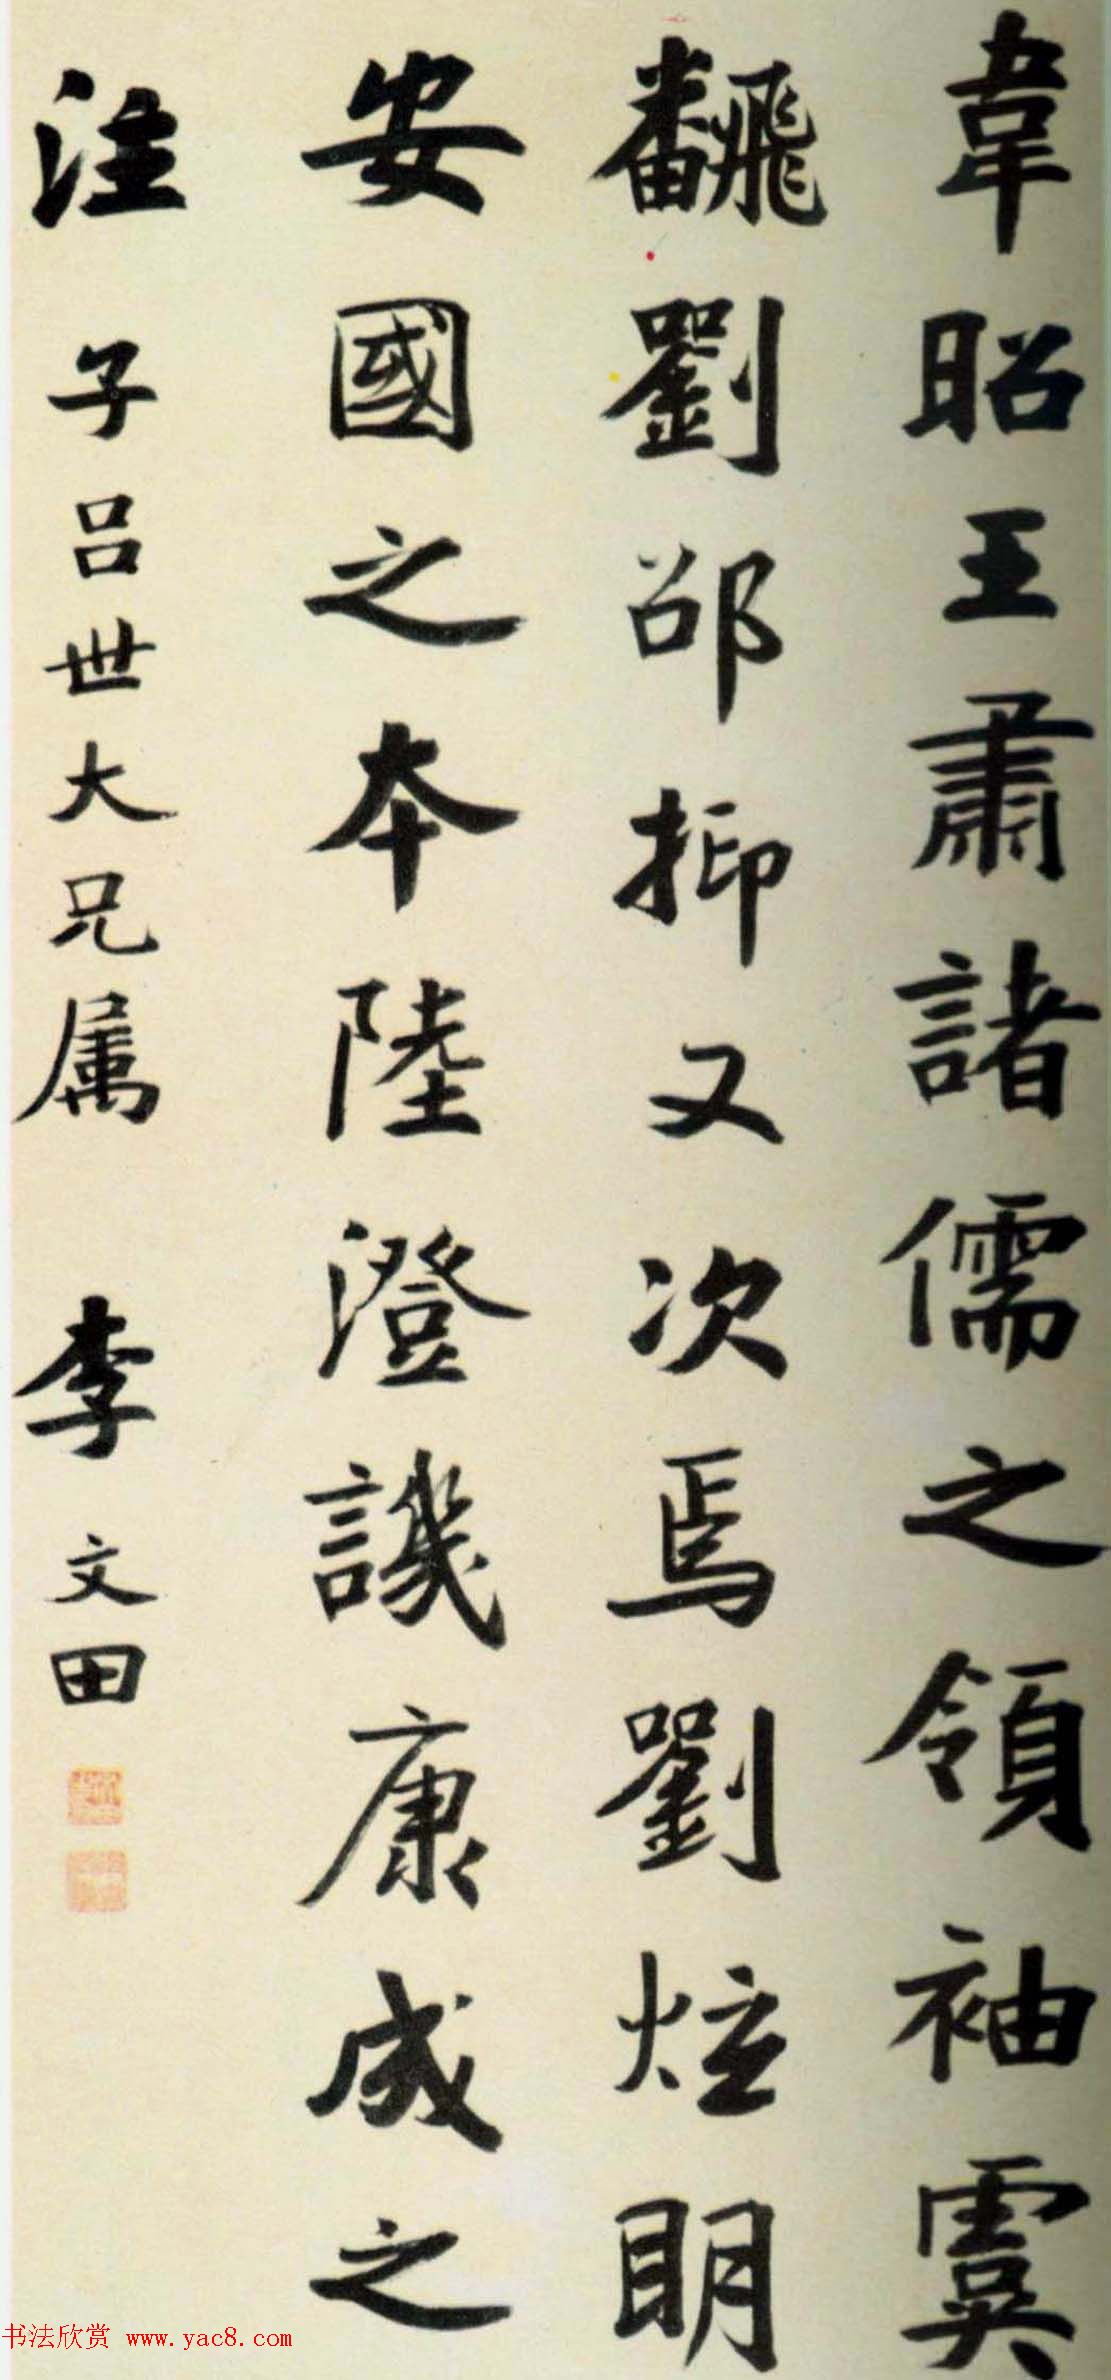 韋昭王肅諸儒之領袖虞
飜劉邵抑又次焉劉炫明
安國之本陸澄譏康成之
注 子呂世大兄属 李文田
书法欣赏 www.yac8.com